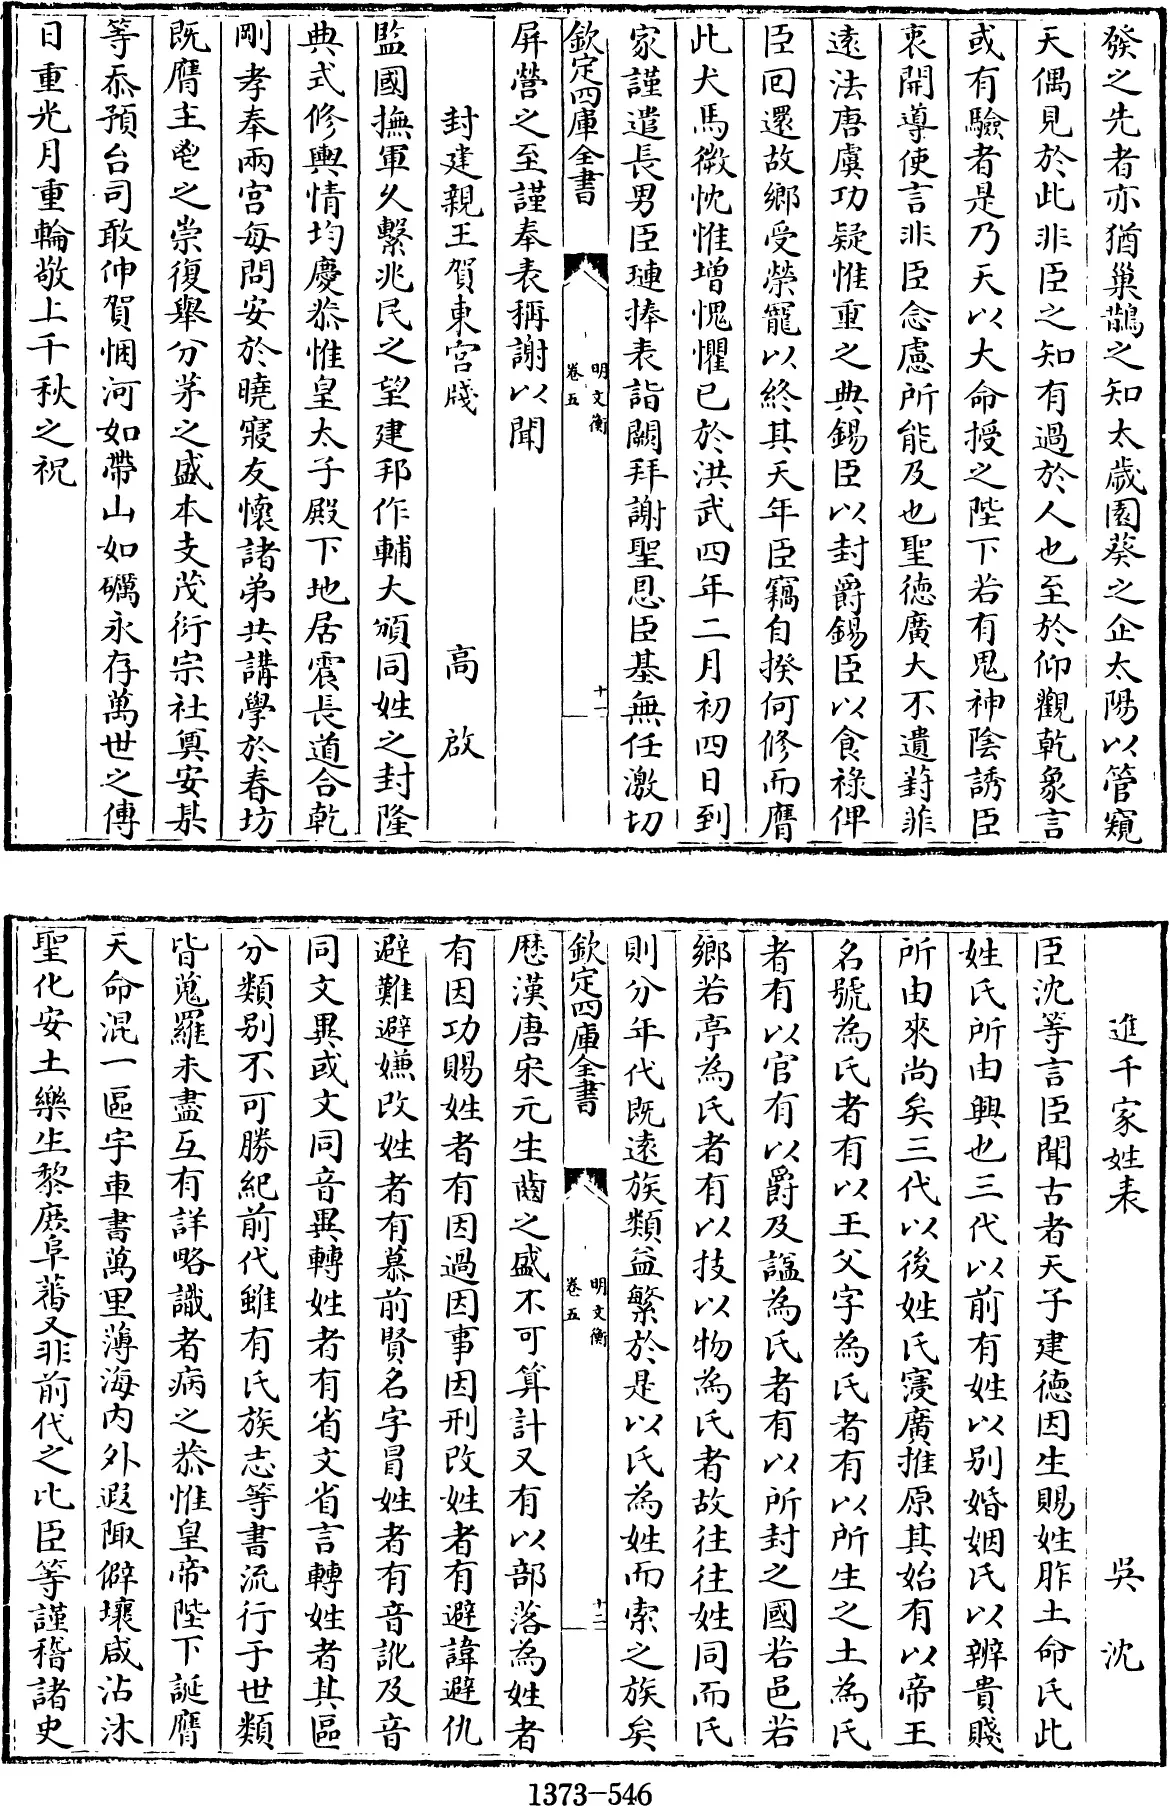 發之先者亦猶巢鵲之知太歲園葵之企太陽以管窺
天偶見於此非臣之知有過於人也至於仰觀乾象言
或有驗者是乃天以大命授之陛下若有鬼神陰誘臣
衷開導使言非臣念慮所能及也聖德廣大不遺葑菲
遠法唐虞功疑惟重之典錫臣以封爵錫臣以食祿俾
臣回還故鄉受榮寵以終其天年臣竊自揆何修而膺
此犬馬微忱惟增愧懼已於洪武四年二月初四日到
家謹遣長男臣璉捧表詣闕拜謝聖恩臣基無任激切
欽定四庫全書
明文衡
卷五
十一
屏營之至謹奉表稱謝以聞
封建親王賀東宮牋 高啟
監國撫軍久繫兆民之望建邦作輔大頒同姓之封隆
典式修輿情均慶恭惟皇太子殿下地居震長道合乾
剛孝奉兩宮每問安於曉寢友懷諸弟共講學於春坊
既膺主鬯之崇復舉分茅之盛本支茂衍宗社奠安某
等忝預台司敢伸賀悃河如帶山如礪永存萬世之傳
日重光月重輪敬上千秋之祝
進千家姓表 吳沈
臣沈等言臣聞古者天子建德因生賜姓胙土命氏此
姓氏所由興也三代以前有姓以別婚姻氏以辨貴賤
所由來尚矣三代以後姓氏寖廣推原其始有以帝王
名號為氏者有以王父字為氏者有以所生之土為氏
者有以官有以爵及諡為氏者有以所封之國若邑若
鄉若亭為氏者有以技以物為氏者故往往姓同而氏
則分年代既遠族類益繁於是以氏為姓而索之族矣
欽定四庫全書
明文衡
卷五
十二
歷漢唐宋元生齒之盛不可算計又有以部落為姓者
有因功賜姓者有因過因事因刑改姓者有避諱避仇
避難避嫌改姓者有慕前賢名字冒姓者有音訛及音
同文異或文同音異轉姓者有省文省言轉姓者其區
分類別不可勝紀前代雖有氏族志等書流行于世類
皆蒐羅未盡互有詳略識者病之恭惟皇帝陛下誕膺
天命混一區宇車書萬里薄海內外遐陬僻壤咸沾沐
聖化安土樂生黎庶阜蕃又非前代之比臣等謹稽諸史
1373-546